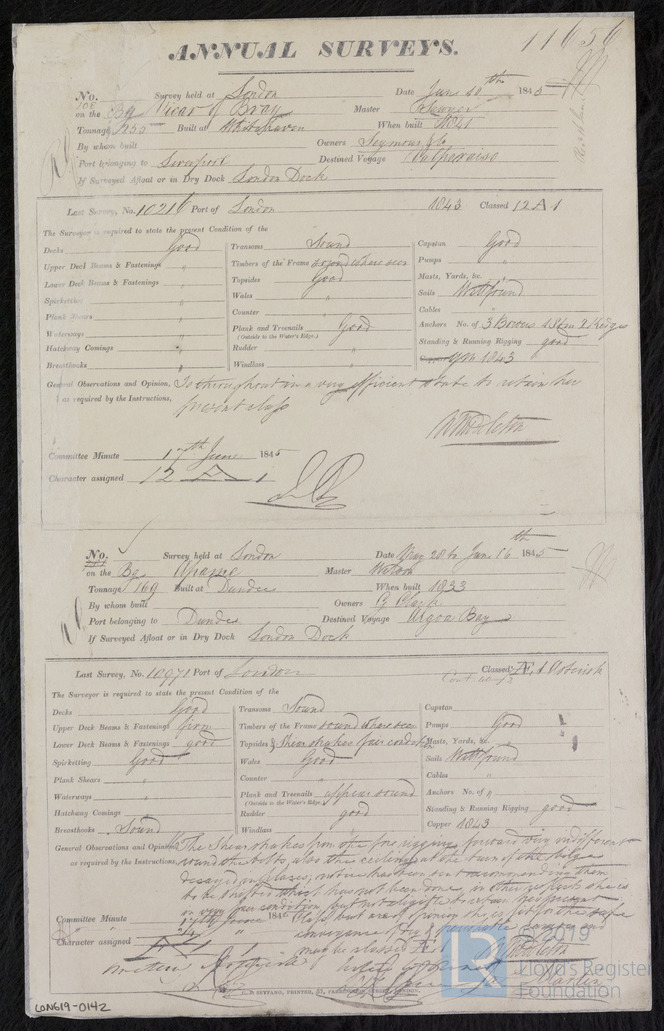 11656
ANNUAL SURVEYS.
No. Survey held at London Date June 10th 1845
on the Bg Vicar of Bray Master
Tonnage 250 Built at Whitehaven When built 1841
By whom built Owners Seymour & Co
Port belonging to Liverpool Destined Voyage Valparaiso
If Surveyed Afloat or in Dry Dock London Dock
Last Survey, No. 10216 Port of London 1843 Classed 12 A 1
The Surveyor is required to state the present Condition of the
Decks Good Transoms Sound Capstan Good
Upper Deck Beams & Fastenings " Timbers of the Frame sound where seen Pumps "
Lower Deck Beams & Fastenings " Topsides Good Masts, Yards, &c. "
Spirketting " Wales " Sails Well found
Plank Shears " Counter " Cables "
Waterways " Plank and Treenails Good Anchors No. of 3 Bowers 1 Stm 2 Kedges
(Outside to the Water's Edge.)
Hatchway Comings " Rudder " Standing & Running Rigging good
Breasthooks " Windlass " Copper 1843
General Observations and Opinion, Is throughout in a very efficient state to retain her
as required by the Instructions, present class
Committee Minute 17th June 1845
Character assigned 12 A 1
No. Survey held at London Date May 28 to June 16th 1845
on the Bg Master Watson
Tonnage 169 Built at Dundee When built 1833
By whom built Owners
Port belonging to Dundee Destined Voyage Algoa Bay
If Surveyed Afloat or in Dry Dock London Dock
Last Survey, No. 10971 Port of London Classed Æ 1
The Surveyor is required to state the present Condition of the
Decks Good Transoms Sound Capstan
Upper Deck Beams & Fastenings from Timbers of the Frame sound where seen Pumps Good
Lower Deck Beams & Fastenings good Topsides & Shearstrakes fair condition Masts, Yards, &c. "
Spirketting Good Wales Good Sails Well found
Plank Shears " Counter " Cables "
Waterways " Plank and Treenails appear sound Anchors No. of "
(Outside to the Water's Edge.)
Hatchway Comings " Rudder good Standing & Running Rigging good
Breasthooks Sound Windlass " Copper 1843
General Observations and Opinion, The Shearstrakes from the fore rigging forward very indifferent
as required by the Instructions, round the bolts, also the ceiling at the turn of the bilge
decayed in places, notice has been sent recommending them
to be shifted which has not been done, in other respects she is
in very fair condition, but not eligible to retain her present
Committee Minute 17th June 1845 class but
24 " conveyance of dry &
Character assigned Æ 1 may be classed Æ 1
PRINTER, LONDON.
LON619-0142
© 2019
LR
Lloyd's Register
Foundation